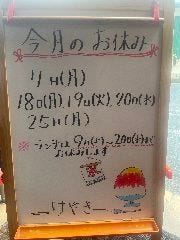 今月のお休み
4日(月)
18日(月)19日(火)20日(水)
25日(月)
※ランチは9日(土)〜20日(水)まで
お休みします
けやき